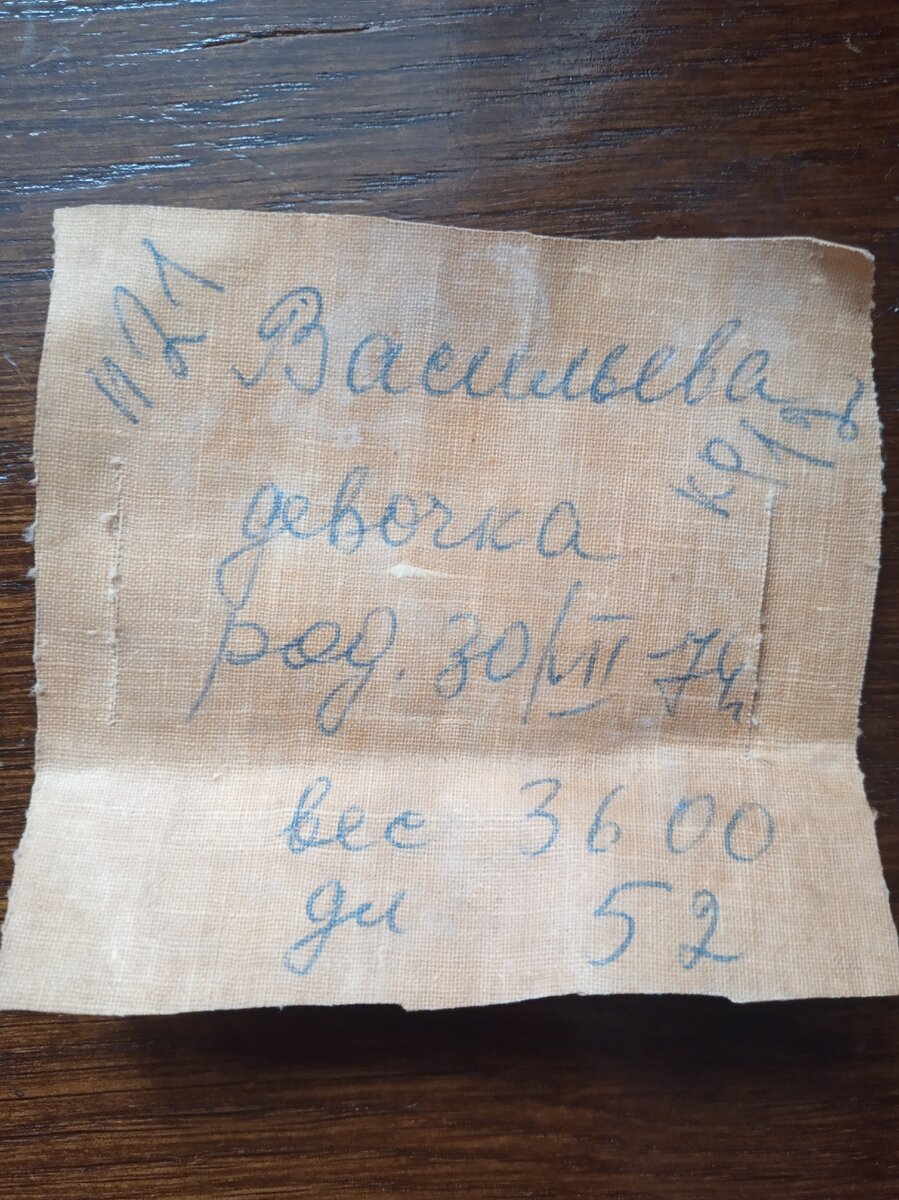 №21
Васильева
девочка
род. 30/VII-74
вес 3600
дл 52